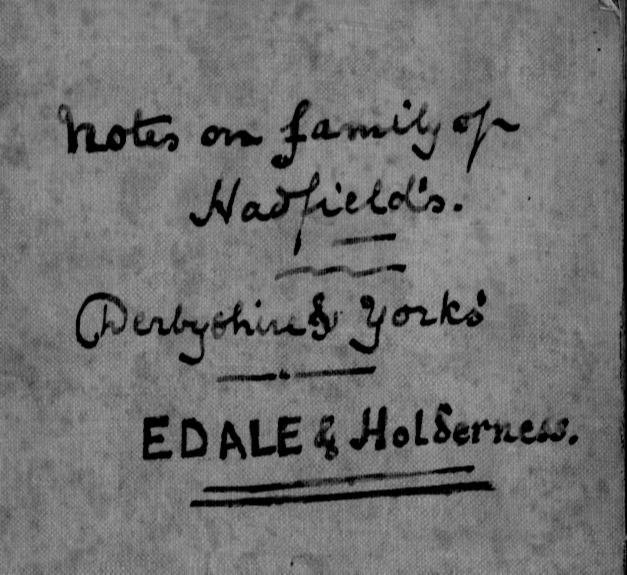 Notes on family of
Hadfield's.
Derbyshire & Yorks'
EDALE & Holderness.